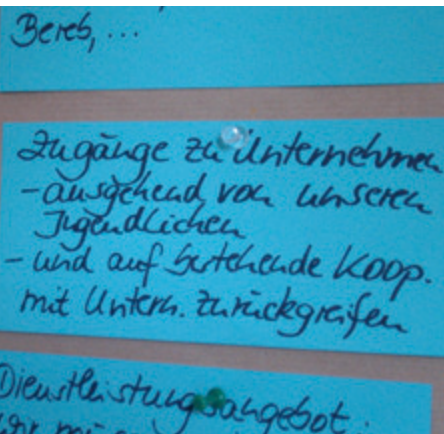 Bereb, ...
Zugänge zu Unternehmen
- ausgehend von unseren
Jugendlichen
- und auf bestehende Koop.
mit Untern. zurückgreifen
Dienstleistungsangebot
wir